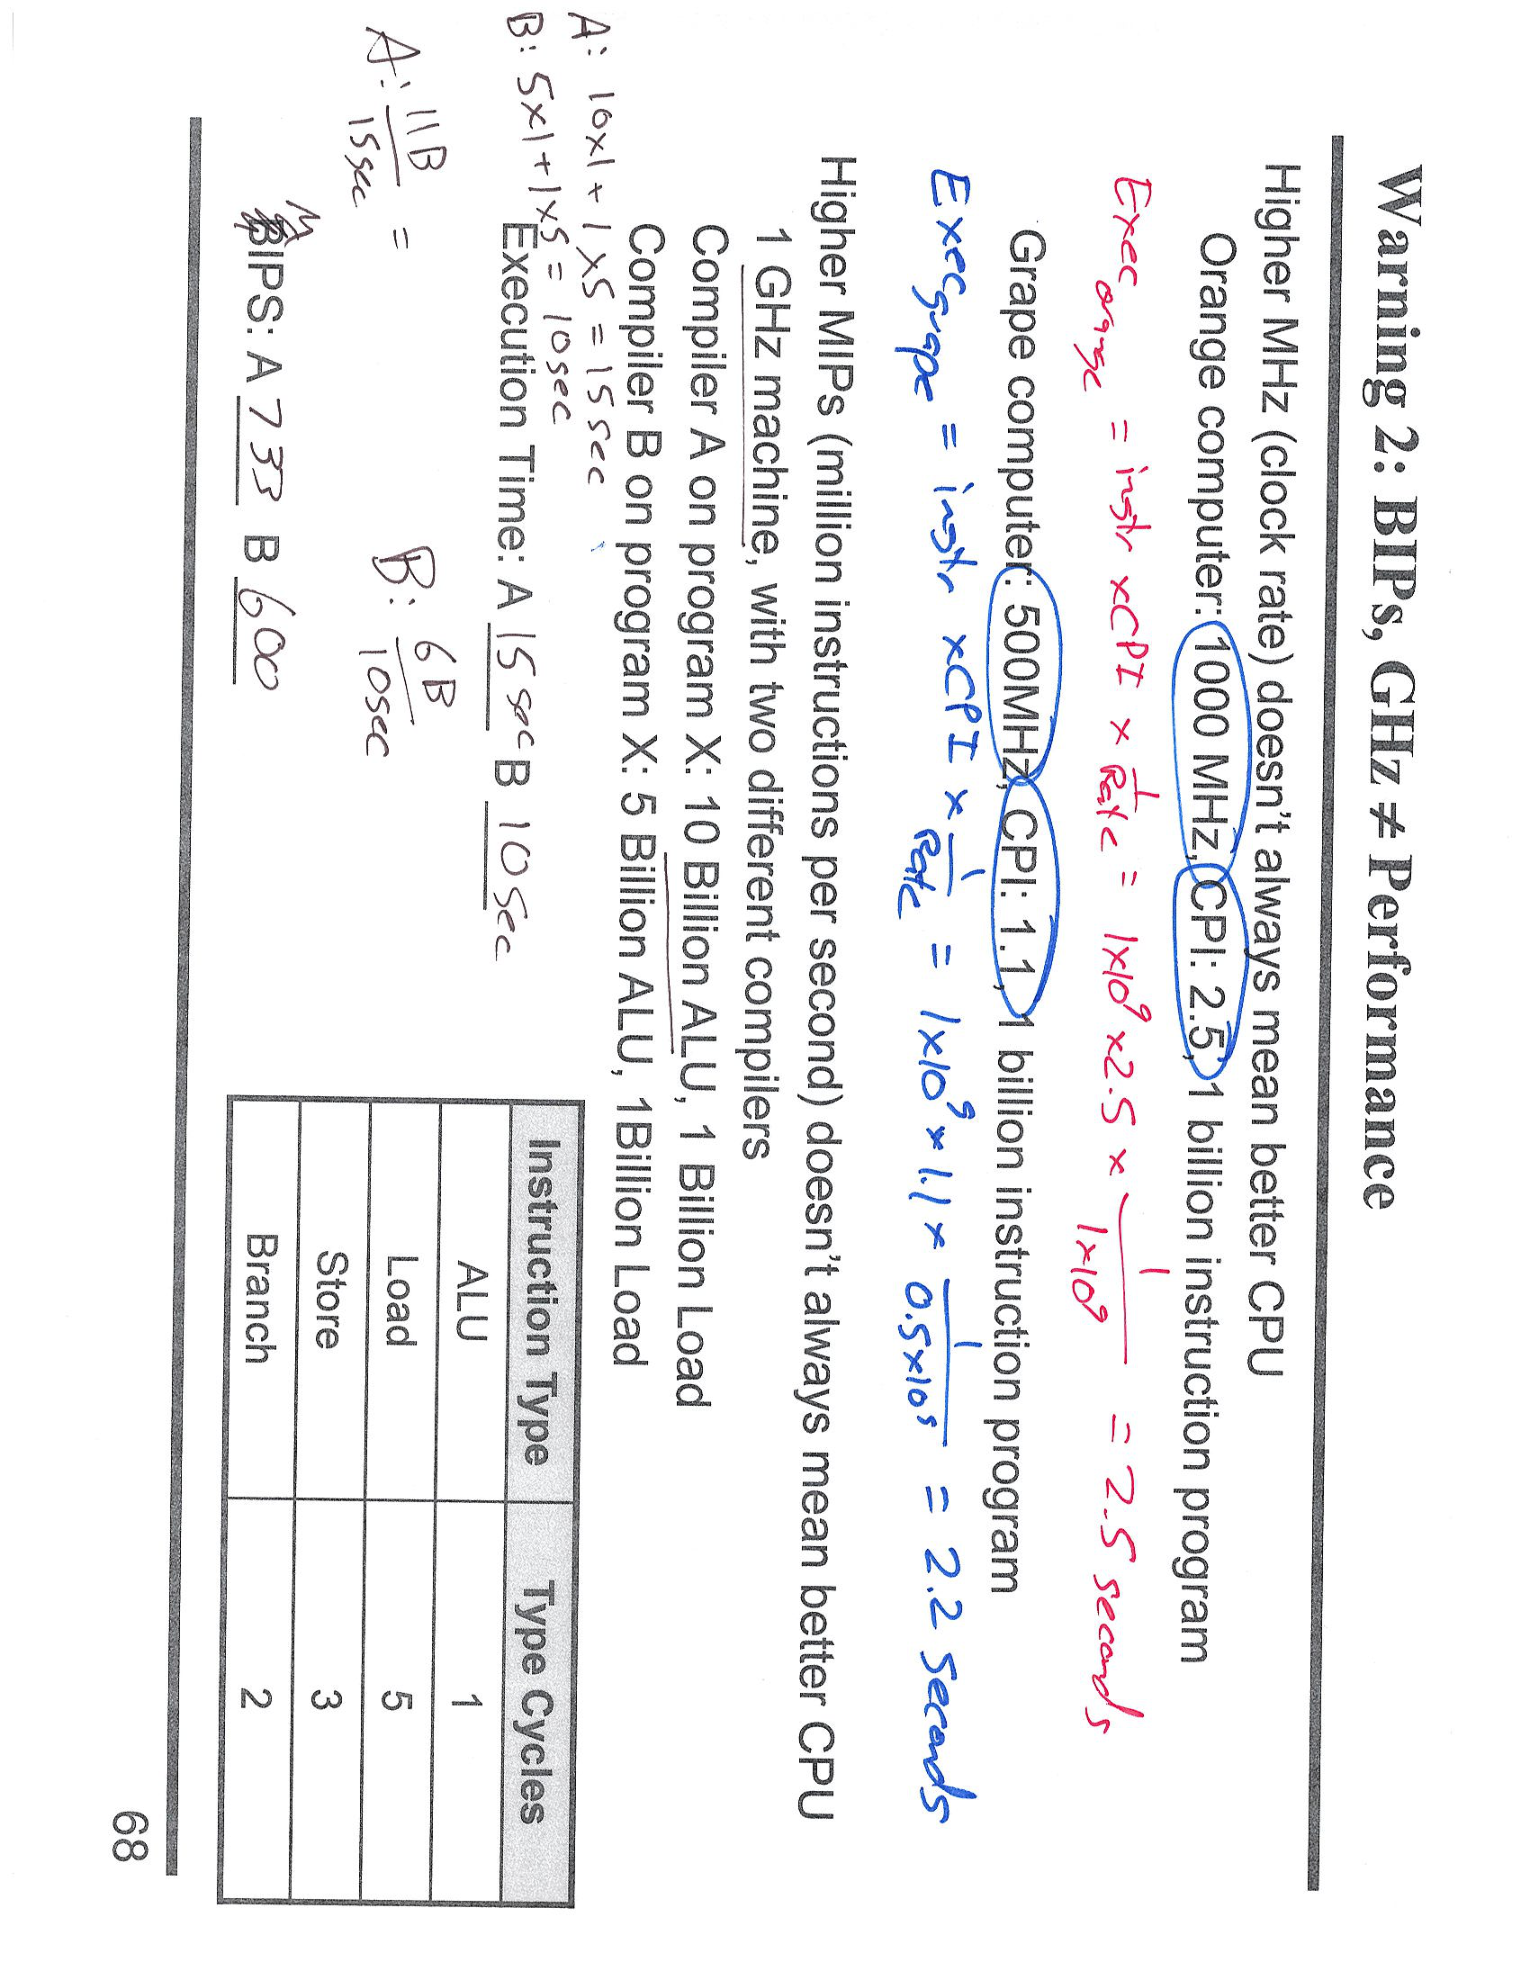 Warning 2: BIPs, GHz ≠ Performance
Higher MHz (clock rate) doesn't always mean better CPU
Orange computer: 1000 MHz, CPI: 2.5, 1 billion instruction program
Exec orange = instr x CPI x 1/Rate = 1x10^9 x 2.5 x 1/1x10^9 = 2.5 seconds
Grape computer: 500MHz, CPI: 1.1, 1 billion instruction program
Exec grape = instr x CPI x 1/Rate = 1x10^9 x 1.1 x 1/0.5x10^9 = 2.2 seconds
Higher MIPs (million instructions per second) doesn't always mean better CPU
1 GHz machine, with two different compilers
Compiler A on program X: 10 Billion ALU, 1 Billion Load
Compiler B on program X: 5 Billion ALU, 1Billion Load
A: 10x1 + 1x5 = 15sec
B: 5x1 + 1x5 = 10sec
Execution Time: A 15 sec B 10 sec
A: 11B/15sec = B: 6B/10sec
MIPS: A 733 B 600
Instruction Type Type Cycles
ALU 1
Load 5
Store 3
Branch 2
68